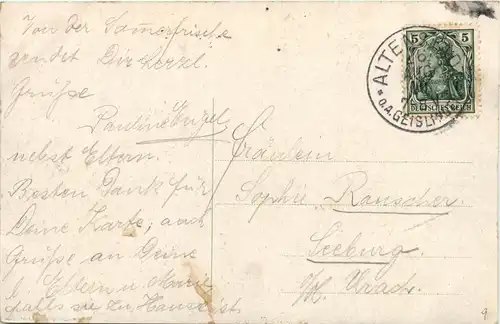 Von der Sommerfrische
sendet Dir herzl.
Grüsse
Pauline Engel
nebst Eltern.
Besten Dank für
Deine Karte, auch
Grüsse an Deine
l. Eltern u. Marie
falls sie zu Hause ist.
Fräulein
Sophie Rauscher.
Seeburg.
Urach.
5 5
DEUTSCHES REICH
* ALTEN
O.A. GEISLI
9